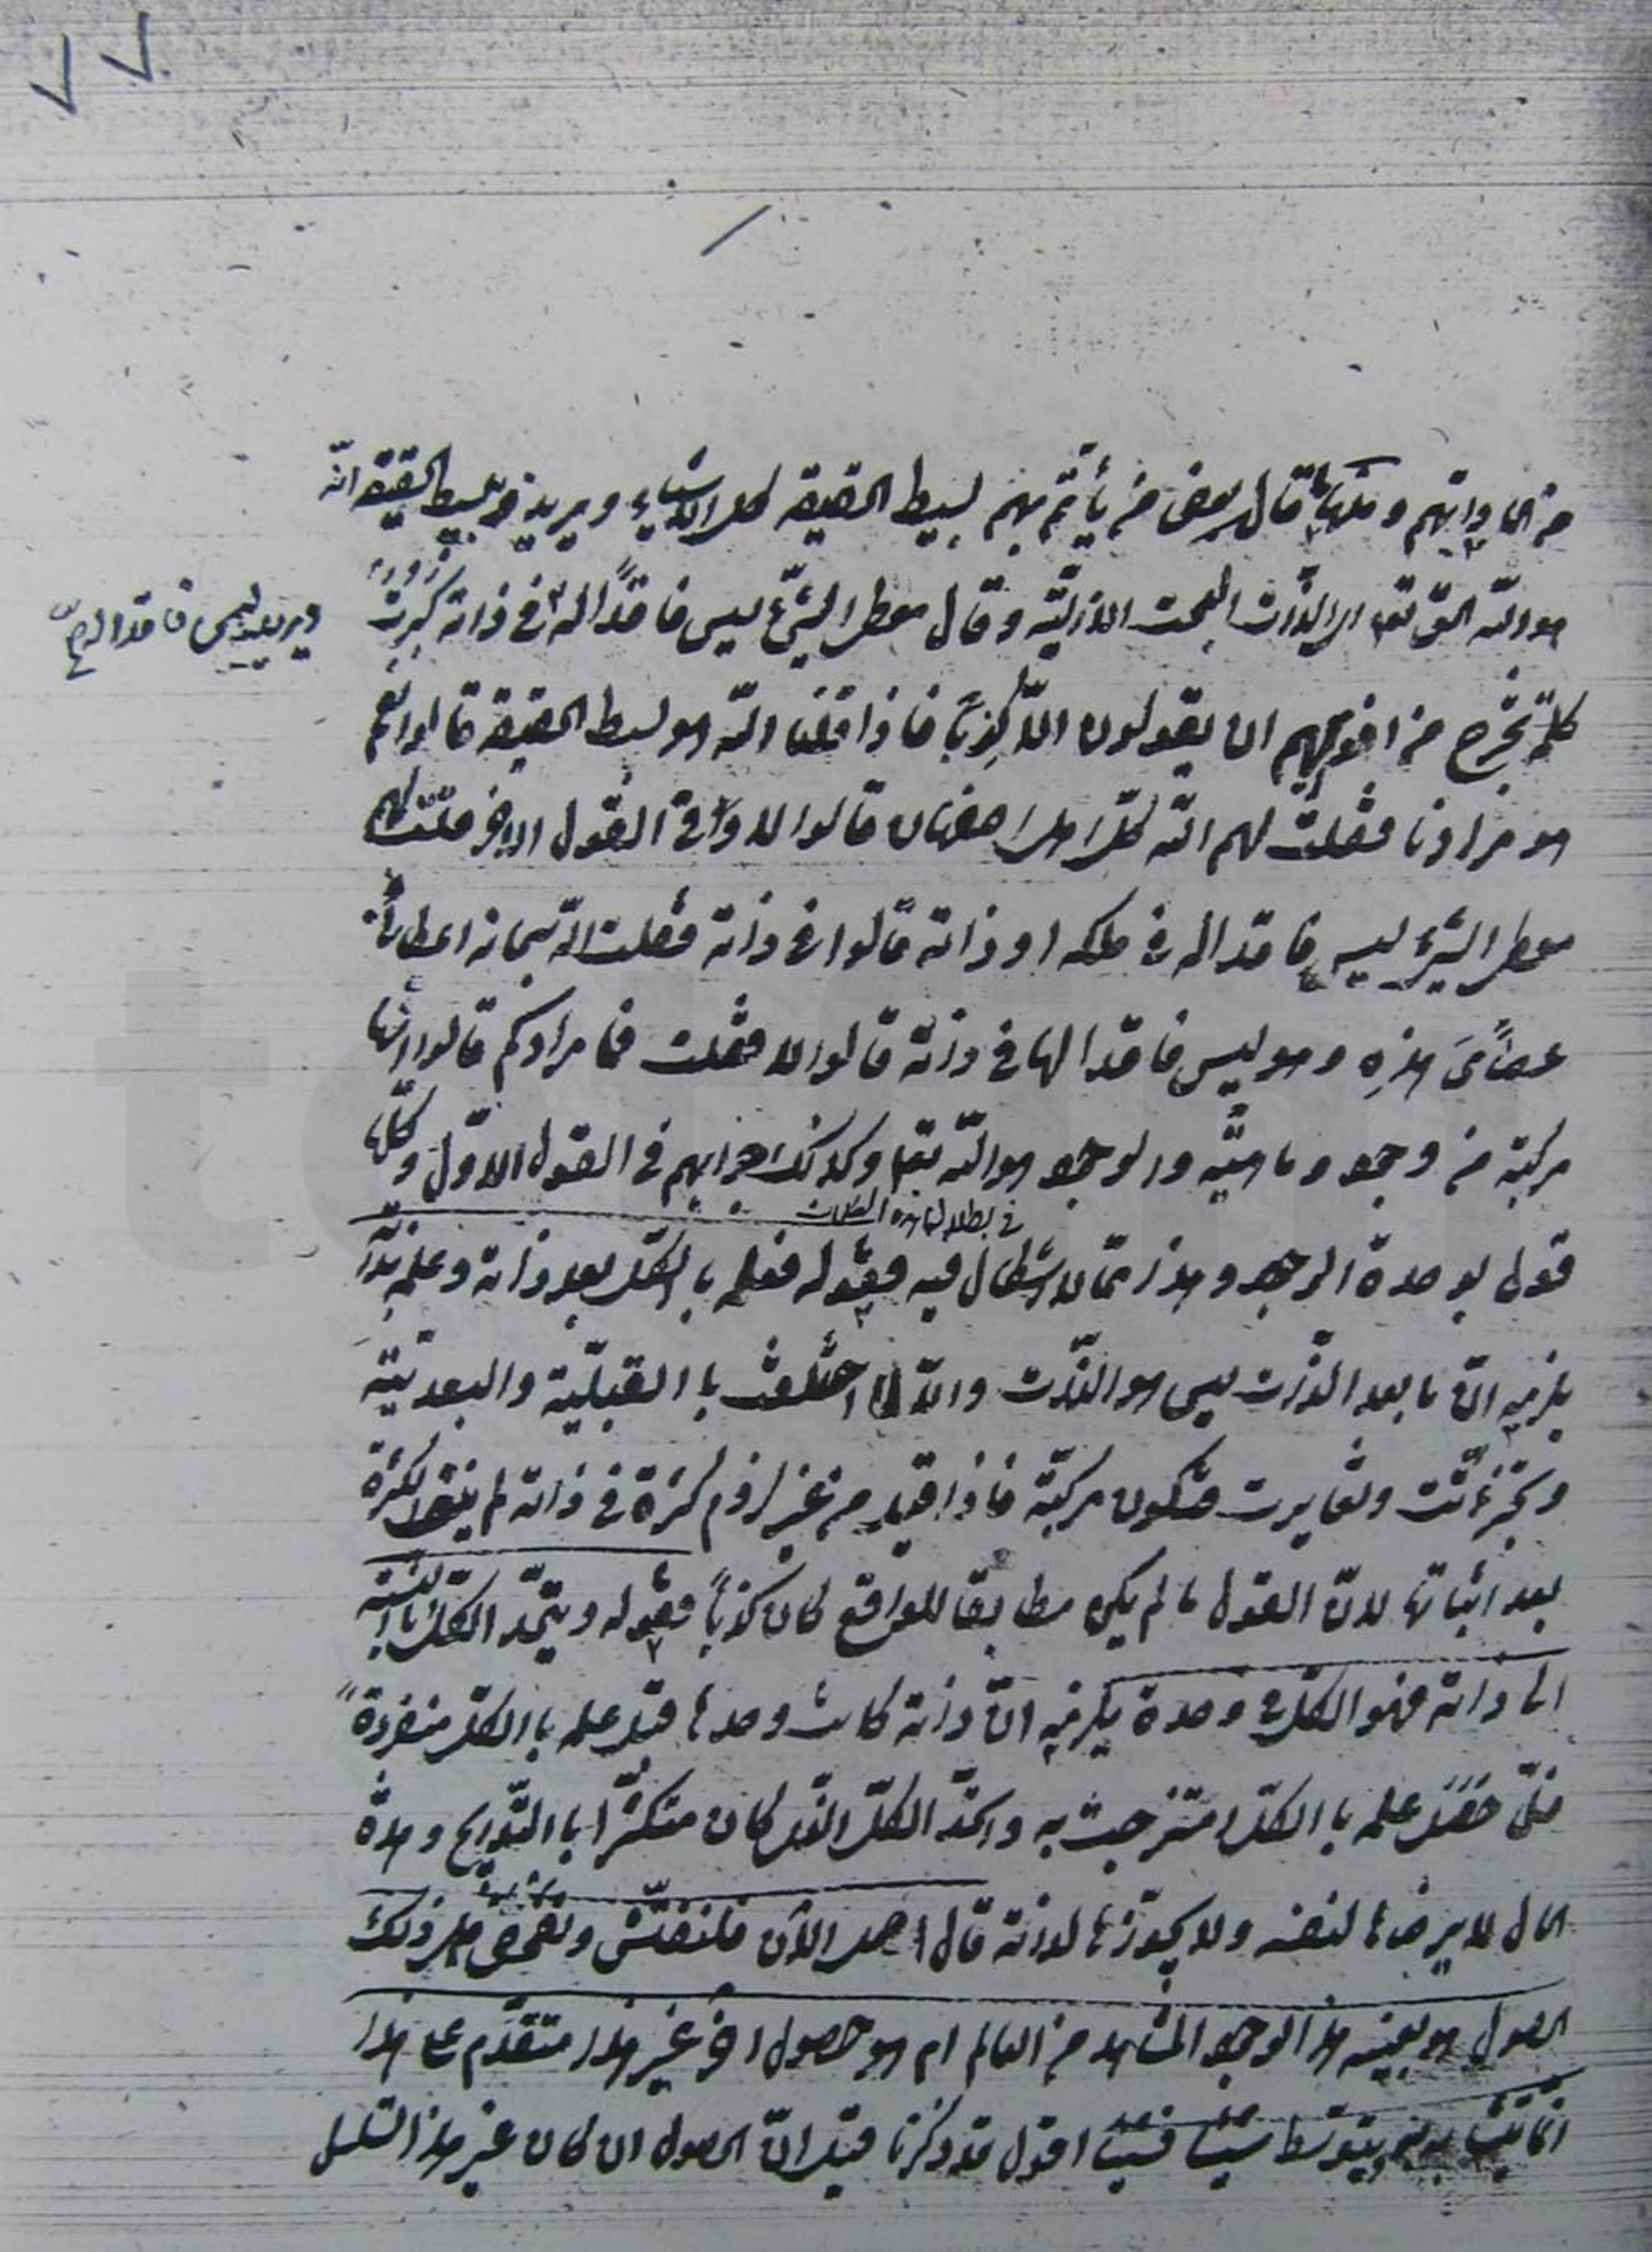 قال بعض من يأتم بهم بسيط الحقيقة كل الأشياء ويريد من بسيط الحقيقة أنّه
هو اللّه الحق تعالى الذّات البحت الازليّة وقال معطى الشّىء ليس فاقدًا له فى ذاته كبرت
ويريد بليس فاقدا له
كلمةً تخرج من افواههم ان يقولون الّا كذبًا فاذا قلنا اللّه هو بسيط الحقيقة قالوا نعم
هو مرادنا فقلت لهم انّه كلّ قالوا لا وفى القول الاخر قلت لهم
معطى الشىء ليس فاقدا له فى ملكه او ذاته قالوا فى ذاته فقلت انّه سبحانه اعطانى
عصاى هذه وهو ليس فاقدا لها فى ذاته قالوا لا فقلت فما مرادكم قالوا انّها
مركبة من وجود وماهيّة والوجود هو اللّه تعالى وكذلك جوابهم فى القول الاوّل وكلّها
فى بطلانه
قول بوحدة الوجود وهذا ممّا لا اشكال فيه فقوله فعلمه بالكلّ بعد ذاته وعلمه بذاته
يلزمه انّ ما بعد الذّات ليس هو الذّات والّا لما اختلفت با القبليّة والبعديّة
وتجزّئت وتغايرت فتكون مركبّة فاذا قيل من غير لزوم كثرة فى ذاته لم ينف الكثرة
بعد اثباتها لانّ القول ما لم يكن مطابقا للواقع كان كذبًا فقوله ويتّحد الكلّ بالنسبة
الى ذاته فهو الكلّ فى وحدة يلزمه انّ ذاته كانت وحدها قبل علمه با الكلّ منفردةً
فلمّا حصل علمه با الكلّ امتزجت به واتّحد الكلّ الّذى كان متكثّرا با التّدريج وهذه
الحال لا يرضاها لنفسه ولا يجوّزها لذاته قال الآن فلنفتّش ونفحص هل ذلك
الحصول هو بعينه هذا الوجود المشاهد من العالم ام هو حصول اخر غير هذا متقدّم على هذا
بتوسّط شيئا فشيئا اقول قد ذكرنا قبل انّ الحصول ان كان غير هذا